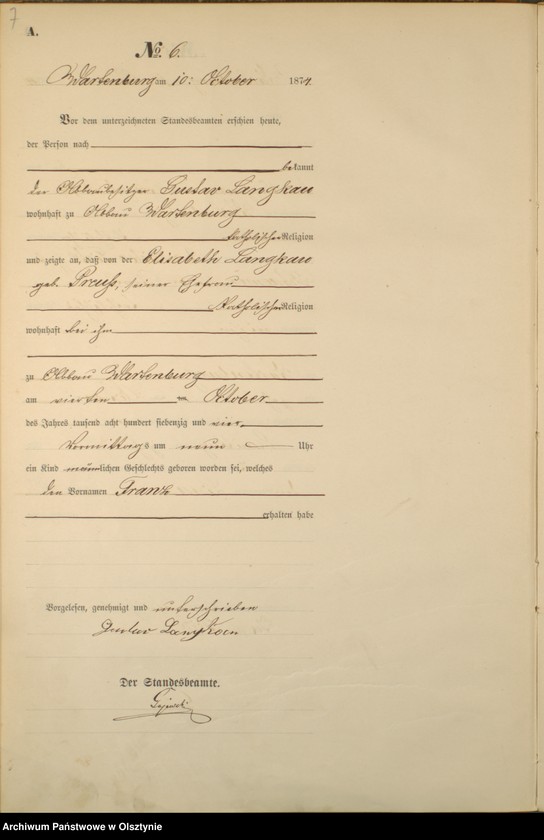 7
A.
No. 6.
Wartenburg am 10: October 1874.
Vor dem unterzeichneten Standesbeamten erschien heute,
der Person nach
bekannt
der Abbaubesitzer Gustav Langkau
wohnhaft zu Abbau Wartenburg
katholischer Religion
und zeigte an, daß von der Elisabeth Langkau
geb. Preuß, seiner Ehefrau
katholischer Religion
wohnhaft bei ihm
zu Abbau Wartenburg
am vierten October
des Jahres tausend acht hundert siebenzig und vier
Vormittags um neun Uhr
ein Kind männlichen Geschlechts geboren worden sei, welches
den Vornamen Franz
erhalten habe
Vorgelesen, genehmigt und unterschrieben
Gustav Langkau
Der Standesbeamte.
Archiwum Państwowe w Olsztynie